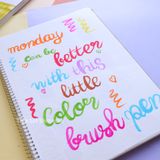 monday
can be
better
with this
little
color
brush pen